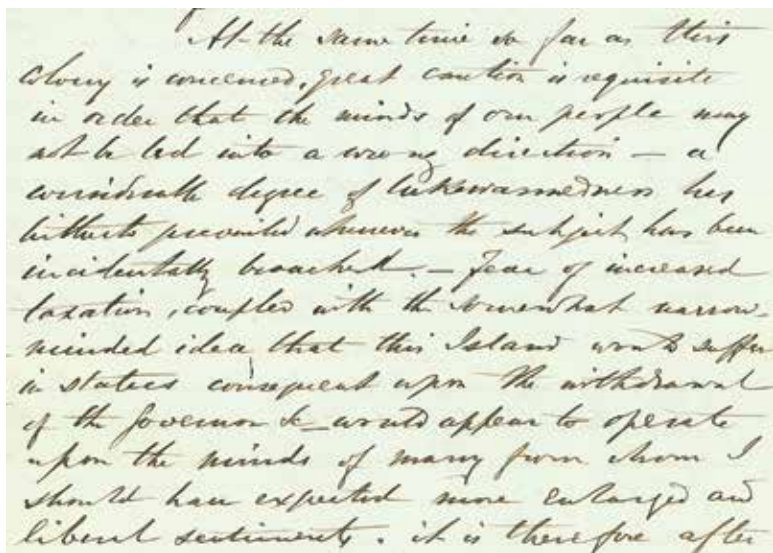 At the same time so far as this
Colony is concerned, great caution is requisite
in order that the minds of our people may
not be led into a wrong direction — a
considerable degree of lukewarmedness has
hitherto prevailed whenever the subject has been
incidentally broached. — Fear of increased
taxation, coupled with the somewhat narrow-
minded idea that this Island would suffer
in status consequent upon the withdrawal
of the Governor &c — would appear to operate
upon the minds of many from whom I
should have expected more enlarged and
liberal sentiments. it is therefore after